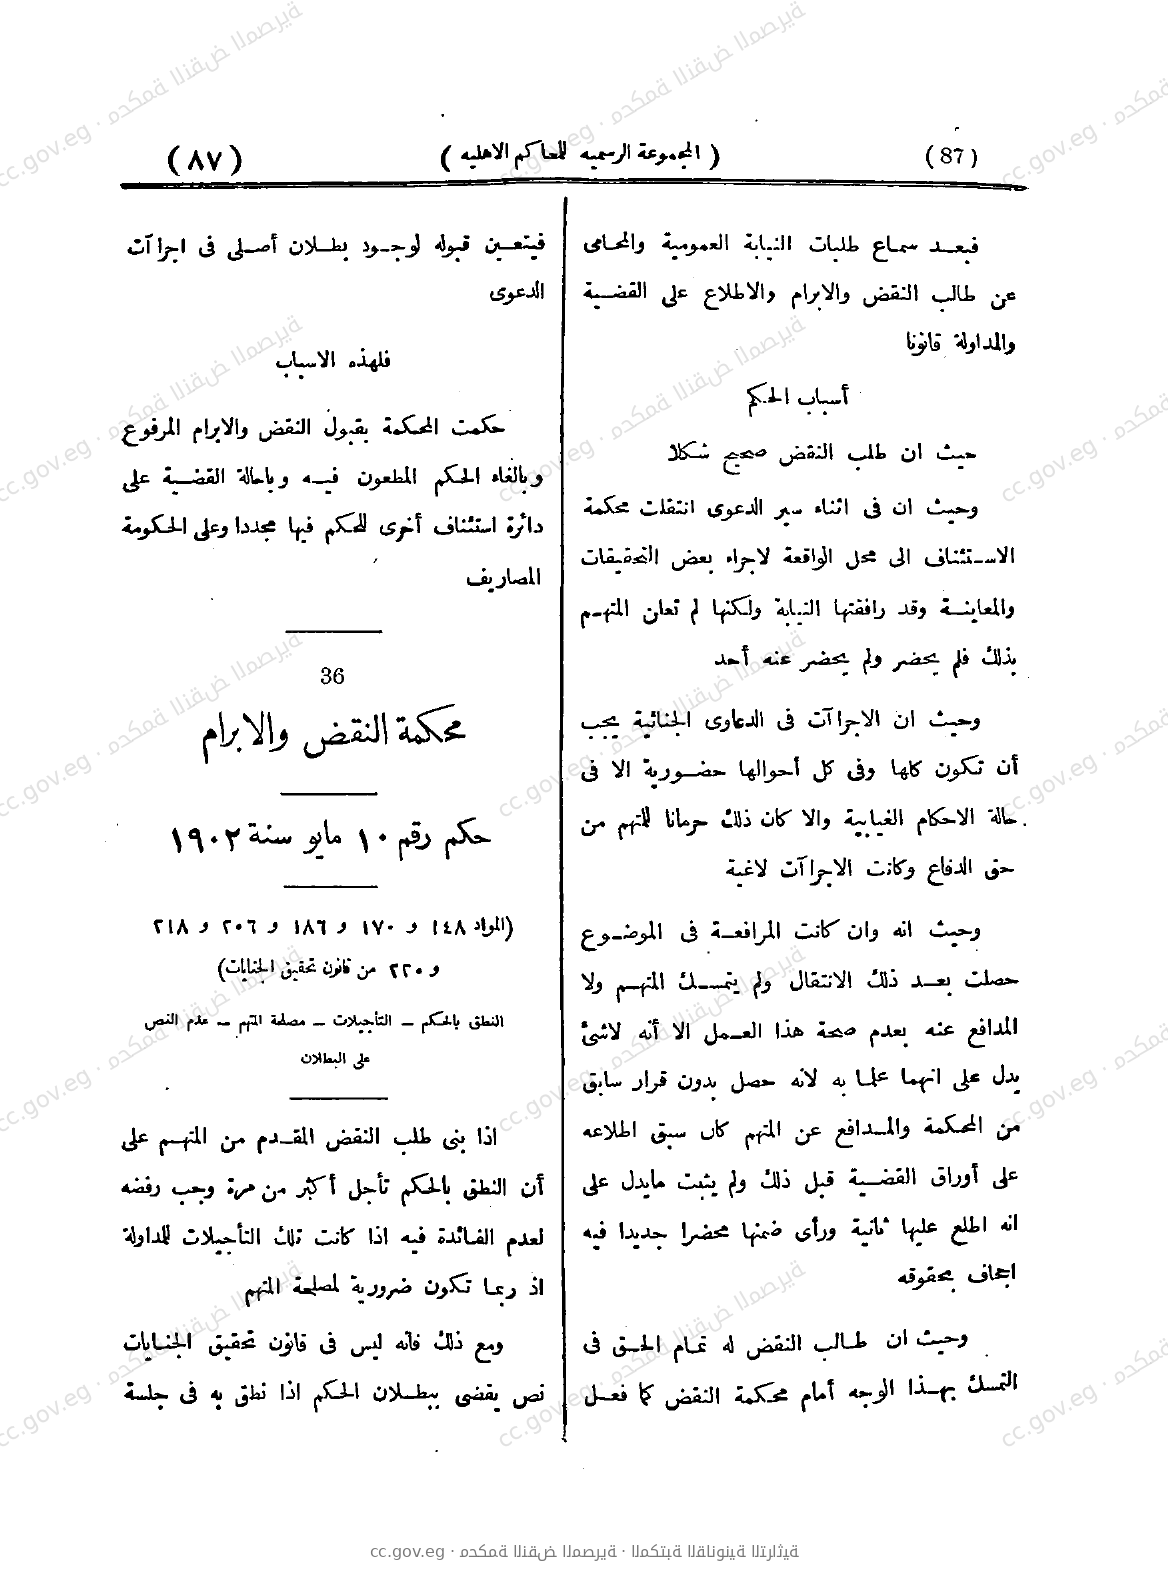 (87)
( المجموعة الرسميه للمحاكم الاهليه )
(٨٧)
فبعد سماع طلبات النيابة العمومية والمحامى
عن طالب النقض والابرام والاطلاع على القضية
والمداولة قانونا
أسباب الحكم
حيث ان طلب النقض صحيح شكلا
وحيث ان فى اثناء سير الدعوى انتقلت محكمة
الاستئناف الى محل الواقعة لاجراء بعض التحقيقات
والمعاينة وقد رافقتها النيابة ولكنها لم تعلن المتهم
بذلك فلم يحضر ولم يحضر عنه أحد
وحيث ان الاجراآت فى الدعاوى الجنائية يجب
أن تكون كلها وفى كل أحوالها حضورية الا فى
حالة الاحكام الغيابية والا كان ذلك حرمانا للمتهم من
حق الدفاع وكانت الاجراآت لاغية
وحيث انه وان كانت المرافعة فى الموضوع
حصلت بعد ذلك الانتقال ولم يتمسك المتهم ولا
المدافع عنه بعدم صحة هذا العمل الا أنه لاشئ
يدل على انهما علما به لانه حصل بدون قرار سابق
من المحكمة والمدافع عن المتهم كان سبق اطلاعه
على أوراق القضية قبل ذلك ولم يثبت مايدل على
انه اطلع عليها ثانية ورأى ضمنها محضرا جديدا فيه
اجحاف بحقوقه
وحيث ان طالب النقض له تمام الحق فى
التمسك بهذا الوجه أمام محكمة النقض كما فعل
فيتعين قبوله لوجود بطلان أصلى فى اجراآت
الدعوى
فلهذه الاسباب
حكمت المحكمة بقبول النقض والابرام المرفوع
وبالغاء الحكم المطعون فيه وباحالة القضية على
دائرة استئناف أخرى للحكم فيها مجددا وعلى الحكومة
المصاريف
36
محكمة النقض والابرام
حكم رقم ١٠ مايو سنة ١٩٠٢
(المواد ١٤٨ و ١٧٠ و ١٨٦ و ٢٠٦ و ٢١٨
و ٢٢٠ من قانون تحقيق الجنايات)
النطق بالحكم – التأجيلات – مصلحة المتهم – عدم النص
على البطلان
اذا بنى طلب النقض المقدم من المتهم على
أن النطق بالحكم تأجل أكثر من مرة وجب رفضه
لعدم الفائدة فيه اذا كانت تلك التأجيلات للمداولة
اذ ربما تكون ضرورية لمصلحة المتهم
ومع ذلك فانه ليس فى قانون تحقيق الجنايات
نص يقضى ببطلان الحكم اذا نطق به فى جلسة
cc.gov.eg · محكمة النقض المصرية · المكتبة القانونية التراثية